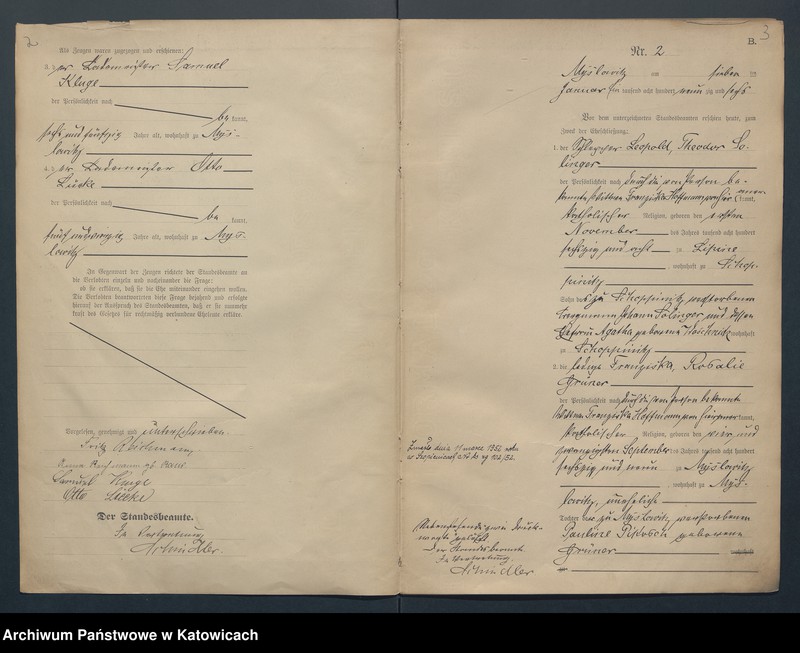 2
Als Zeugen waren zugezogen und erschienen:
3. der Lademeister Samuel
Kluge
der Persönlichkeit nach
be kannt,
sechs und fünfzig Jahre alt, wohnhaft zu Mys-
lowitz
4. der Lademeister Otto
Lücke
der Persönlichkeit nach
be kannt,
fünfundvierzig Jahre alt, wohnhaft zu Mys-
lowitz
In Gegenwart der Zeugen richtete der Standesbeamte an
die Verlobten einzeln und nacheinander die Frage:
ob sie erklären, daß sie die Ehe miteinander eingehen wollen.
Die Verlobten beantworteten diese Frage bejahend und erfolgte
hierauf der Ausspruch des Standesbeamten, daß er sie nunmehr
kraft des Gesetzes für rechtmäßig verbundene Eheleute erkläre.
Vorgelesen, genehmigt und unterschrieben
Fritz
Anna
Samuel Kluge
Otto Lücke
Der Standesbeamte.
In Vertretung
Schindler.
3
B.
Nr. 2
Myslowitz am sieben ten
Januar tausend acht hundert neun zig und sechs
Vor dem unterzeichneten Standesbeamten erschienen heute, zum
Zweck der Eheschließung:
1. der Schlepper Leopold, Theodor So-
linger
der Persönlichkeit nach durch die von Person be-
kannte Wittwe Franziska Hoffmann von hier aner kannt,
katholischer Religion, geboren den
November des Jahres tausend acht hundert
sechszig und acht zu Lipine
, wohnhaft zu Schop-
pinitz
Sohn des zu Schoppinitz verstorbenen
Johann Solinger und dessen
Agatha geborene wohnhaft
zu Schoppinitz
2. die ledige Franziska, Rosalie
Grüner
der Persönlichkeit nach durch die von Person bekannte
Wittwe Franziska Hoffmann von hier kannt,
katholischer Religion, geboren den vier und
zwanzigsten September des Jahres tausend acht hundert
sechszig und neun zu Myslowitz
, wohnhaft zu Mys-
lowitz, unehelich
Tochter der zu Myslowitz verstorbenen
Pauline geborene
Grüner wohnhaft
Zmarł dnia 11 marca 1952 roku
w Szopienicach
Nebenstehend zwei Druck-
worte gelöscht.
Der Standesbeamte
In Vertretung.
Schindler
Archiwum Państwowe w Katowicach